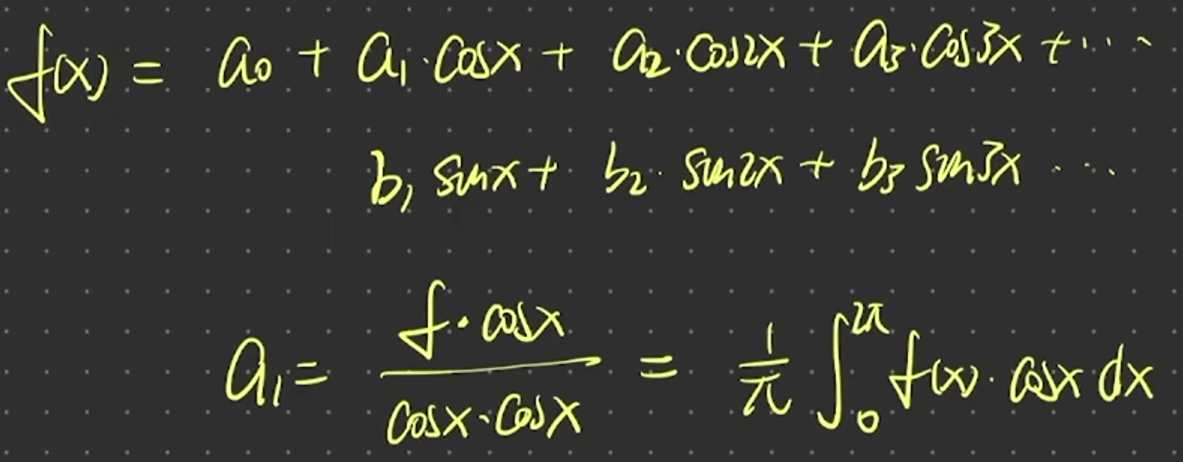 f(x) = a₀ + a₁·cosx + a₂·cos2x + a₃·cos3x + ···
b₁ sinx + b₂· sin2x + b₃ sin3x ···
a₁ = \frac{f·cosx}{cosx·cosx} = \frac{1}{π} ∫₀^{2π} f(x)·cosx dx